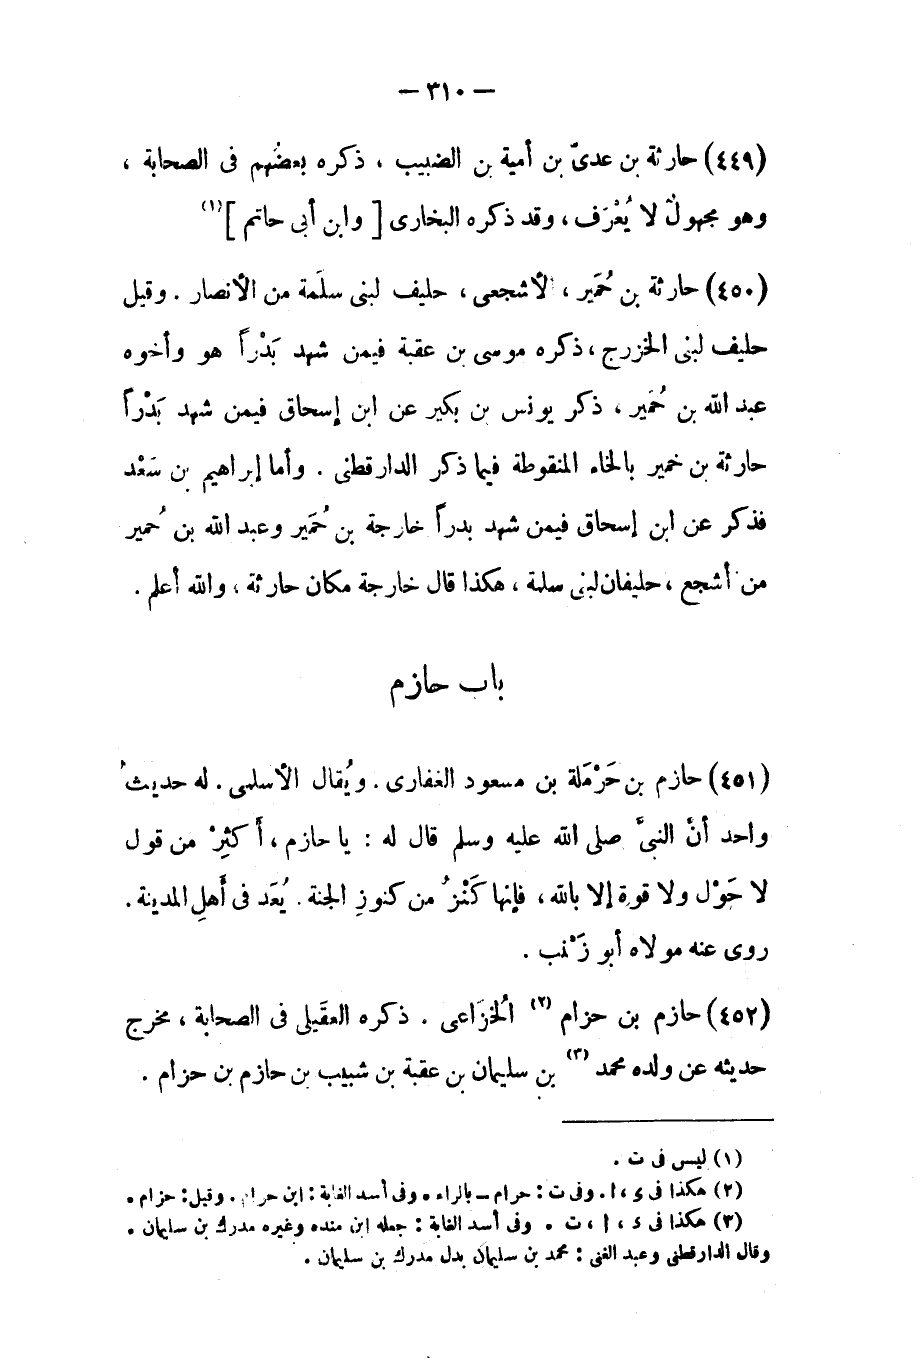 — ٣١٠ —
(٤٤٩) حارثة بن عدىّ بن أمية بن الضبيب ، ذكره بعضُهم فى الصحابة ،
وهو مجهولٌ لا يُعْرَف ، وقد ذكره البخارى [ وابن أبى حاتم ](١)
(٤٥٠) حارثة بن حُمَير ، الأشجعى ، حليف لبنى سلَمة من الأنصار . وقيل
حليف لبنى الخزرج ، ذكره موسى بن عقبة فيمن شهد بَدْراً هو وأخوه
عبد الله بن حُمَير ، ذكر يونس بن بكير عن ابن إسحاق فيمن شهد بَدْراً
حارثة بن خمير بالخاء المنقوطة فيما ذكر الدارقطنى . وأما إبراهيم بن سَعْد
فذكر عن ابن إسحاق فيمن شهد بدراً خارجة بن حُمَير وعبد الله بن حُمير
من أشجع ، حليفان لبنى سلمة ، هكذا قال خارجة مكان حارثة ، والله أعلم .
باب حازم
(٤٥١) حازم بن حَرْمَلة بن مسعود الغفارى . ويُقال الأسلمى . له حديثُ
واحد أنَّ النبىَّ صلى الله عليه وسلم قال له : يا حازم ، أَكثِرْ من قول
لا حَوْل ولا قوة إلا بالله ، فإنها كَنْزُ من كنوزِ الجنة . يُعَد فى أَهلِ المدينة .
روى عنه مولاه أبو زَيْنب .
(٤٥٢) حازم بن حزام (٢) الُخزَاعى . ذكره العقَيلى فى الصحابة ، مخرج
حديثه عن ولده محمد (٣) بن سليمان بن عقبة بن شبيب بن حازم بن حزام .
(١) ليس فى ت .
(٢) هكذا فى ى ، ا . وفى ت : حرام – بالراء . وفى أسد الغابة : ابن حرام . وقيل : حزام .
(٣) هكذا فى ى ، ا ، ت . وفى أسد الغابة : جعله ابن منده وغيره مدرك بن سليمان .
وقال الدارقطنى وعبد الغنى : محمد بن سليمان بدل مدرك بن سليمان .